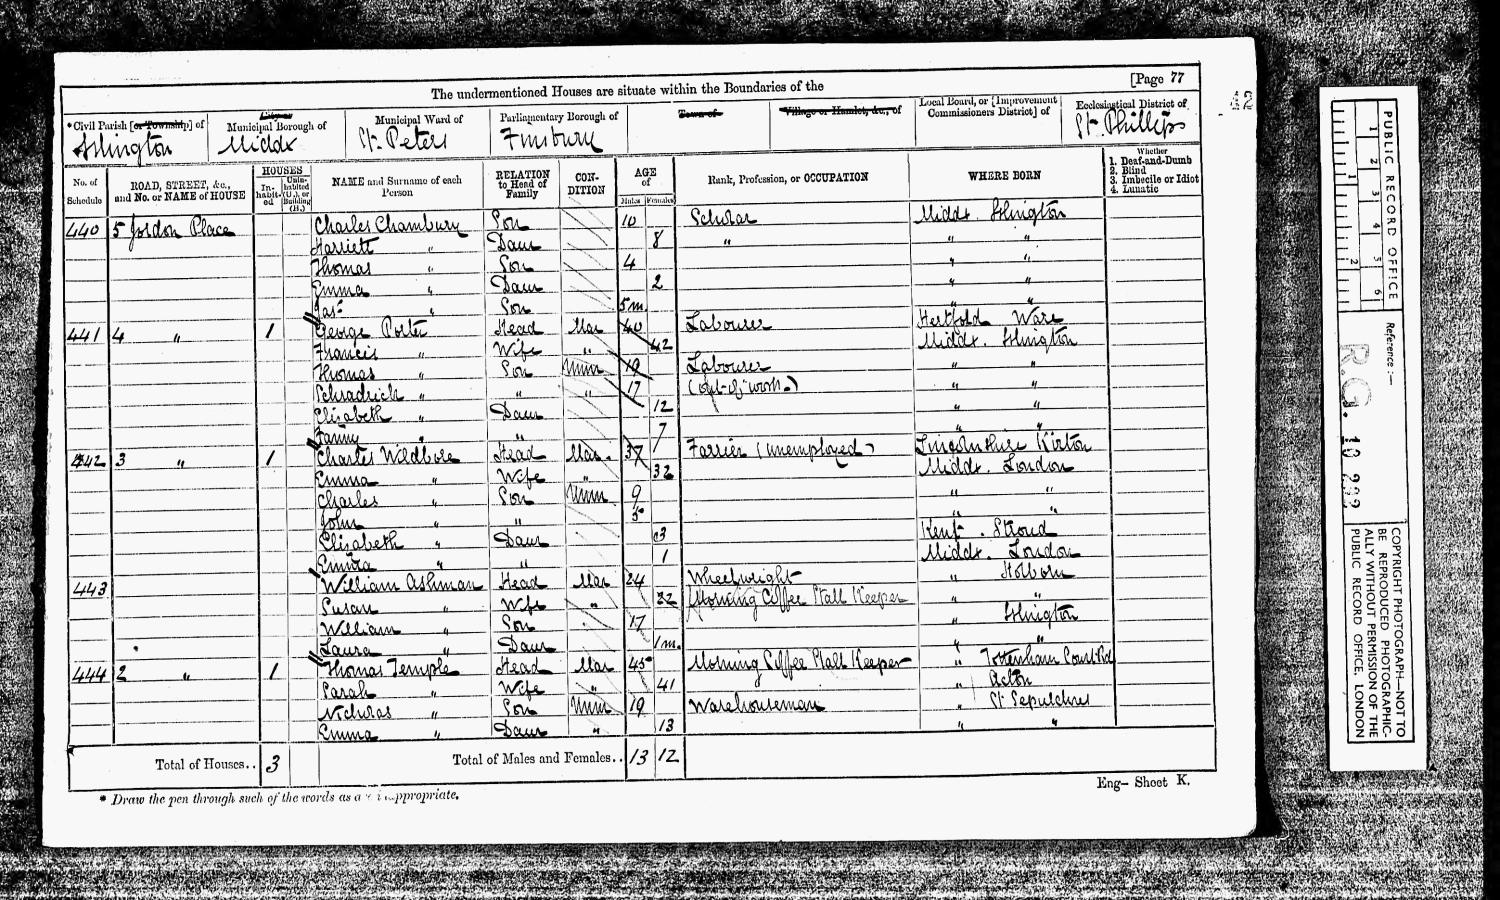 [Page 77
The undermentioned Houses are situate within the Boundaries of the
*Civil Parish [or Township] of Islington
City or Municipal Borough of Middx
Municipal Ward of St. Peters
Parliamentary Borough of Finsbury
Town of
Village or Hamlet, &c., of
Local Board, or [Improvement Commissioners District] of
Ecclesiastical District of St. Phillips
No. of Schedule
ROAD, STREET, &c., and No. or NAME of HOUSE
HOUSES
Inhabited
Uninhabited (U.), or Building (B.)
NAME and Surname of each Person
RELATION to Head of Family
CONDITION
AGE of
Males
Females
Rank, Profession, or OCCUPATION
WHERE BORN
Whether
1. Deaf-and-Dumb
2. Blind
3. Imbecile or Idiot
4. Lunatic
440 5 Place Charles Chambury Son 10 Scholar Middx Islington
Harriett " Daur 8 " " "
Thomas " Son 4 " "
Emma " Daur 2
Jas. " Son 5m. " "
441 4 " 1 George Porter Head Mar 40 Labourer Hertford Ware
Francis " Wife " 42 Middx. Islington
Thomas " Son Unm 19 Labourer " "
Schradrick " " " 17 (out-of-work.) " "
Elizabeth " Daur 12 " "
Fanny " " 7 " "
442 3 " 1 Charles Wildbore Head Mar. 37 Farrier (unemployed) Lincolnshire Kirton
Emma " Wife " 32 Middx. London
Charles " Son Unm 9 " "
John " " 5 " "
Elizabeth " Daur 3 Kent. Stroud
Emma " " 1 Middx. London
443 William Ashman Head Mar 24 Wheelwright " Holborn
Susan " Wife " 22 Morning Coffee Stall Keeper " "
William " Son 17 " Islington
Laura " Daur 1m. " "
444 2 " 1 Thomas Temple Head Mar 45 Morning Coffee Stall Keeper " Tottenham Court Rd
Sarah " Wife " 41 " Acton
Nicholas " Son Unm 19 Warehouseman " St Sepulchres
Emma " Daur " 13 " "
Total of Houses.. 3
Total of Males and Females.. 13 12
* Draw the pen through such of the words as are inappropriate.
Eng– Sheet K.
PUBLIC RECORD OFFICE
1 2 3 4 5 6
1 2
Reference:—
R.G. 10
COPYRIGHT PHOTOGRAPH—NOT TO
BE REPRODUCED PHOTOGRAPHIC-
ALLY WITHOUT PERMISSION OF THE
PUBLIC RECORD OFFICE, LONDON